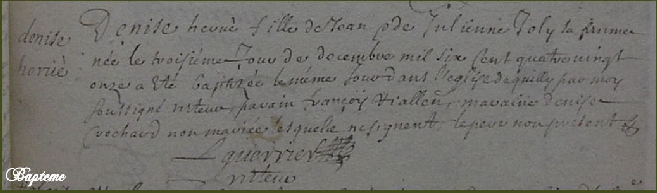 denise
herviè
Denise hervé fille de Jean et de Julienne Joly sa femme
née le troisiéme Jour de decembre mil six sent quatre vingt
onze a été baptizée le même Jour dans l'eglise de quilly par moy
soussigné victeur, parain françois Viallon, maraine denise
Crochard non mariée lesquelle ne signent, le pere non présent
Lguerrier
Bapteme